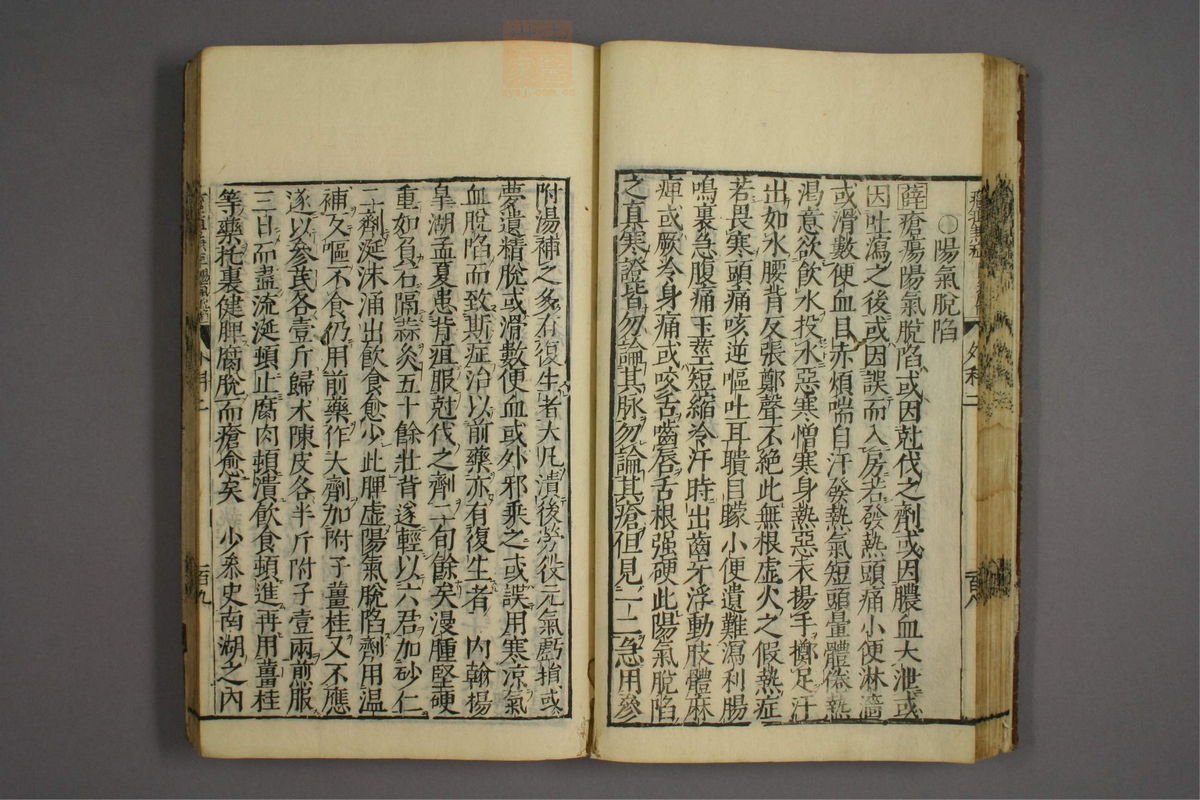 〇陽氣脫陷
薛瘡瘍陽氣脫陷或因尅伐之劑或因膿血大泄或
因吐瀉之後或因誤而入房若發熱頭痛小便淋濇
或滑數便血目赤煩喘自汗發熱氣短頭暈體倦熱
渴意欲飲水投水惡寒憎寒身熱惡衣揚手擲足汗
出如水腰背反張鄭聲不絶此無根虛火之假熱症
若畏寒頭痛咳逆嘔吐耳聵目矇小便遺難瀉利腸
鳴裏急腹痛玉莖短縮冷汗時出齒牙浮動肢體麻
痺或厥冷身痛或咬舌嚙唇舌根强硬此陽氣脫陷
之真寒證皆勿論其脉勿論其瘡但見一二急用參
外科二
百八
附湯補之多有復生者大凡潰後勞役元氣虧損或
夢遺精脫或滑數便血或外邪乘之或誤用寒涼氣
血脫陷而致斯症治以前藥亦有復生者 内翰楊
皐湖孟夏患背疽服尅伐之劑二旬餘矣漫腫堅硬
重如負石隔蒜灸五十餘壯背遂輕以六君加砂仁
二劑涎沫涌出飲食愈少此脾虛陽氣脫陷劑用溫
補久嘔不食仍用前藥作大劑加附子薑桂又不應
遂以參芪各壹斤歸术陳皮各半斤附子壹兩煎服
三日而盡流涎頓止腐肉頓潰飲食頓進再用薑桂
等藥托裏健脾腐脫而瘡愈矣 少叅史南湖之内
百九